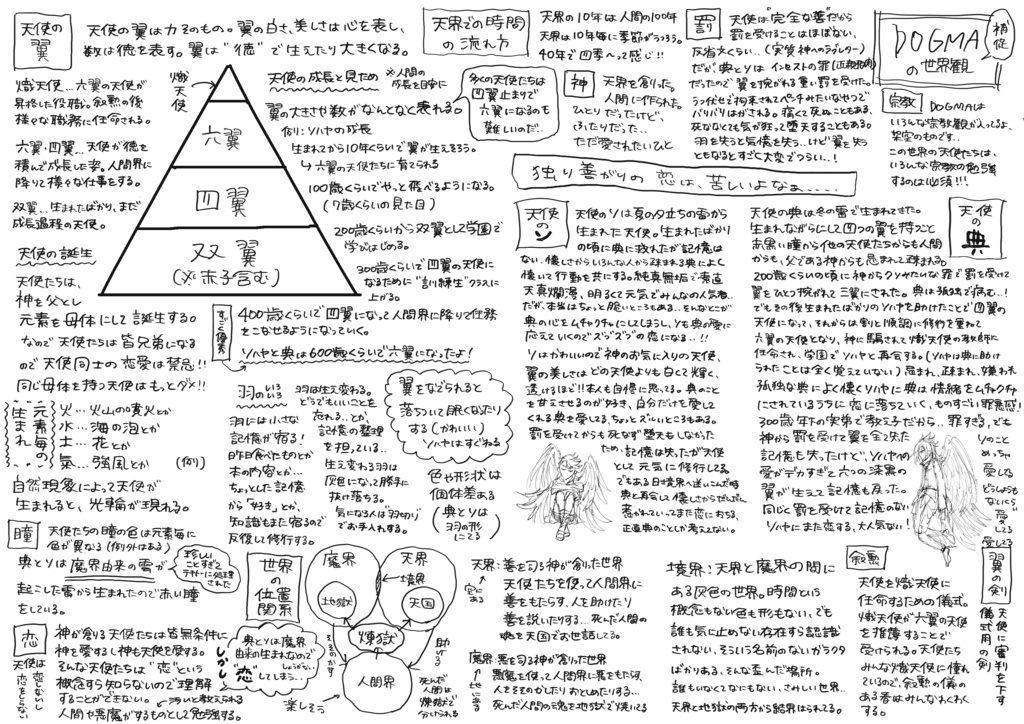 天使の翼
天使の翼は力そのもの。翼の白さ、美しさは心を表し、
数は徳を表す。翼は"徳"で生えたり大きくなる。
熾天使…六翼の天使が
昇格した役職。叙勲の後
様々な職務に任命される。
六翼、四翼…天使が徳を
積んで成長した姿。人間界に
降りて様々な仕事をする。
双翼…生まれたばかり、まだ
成長過程の天使。
熾天使
六翼
四翼
双翼
(※赤子含む)
天使の誕生
天使たちは、
神を父とし
元素を母体にして誕生する。
なので天使たちは皆兄弟になる
ので天使同士の恋愛は禁忌!!
同じ母体を持つ天使はもっとダメ!!
生まれ
元素毎の
火…火山の噴火とか
水…海の泡とか
土…花とか
氣…強風とか (例)
自然現象によって天使が
生まれると、光輪が現れる。
瞳
天使たちの瞳の色は元素毎に
色が異なる(例外はある)
典とソは魔界由来の雷が
珍しいことすぎて
起こした雷から生まれたので赤い瞳
をしている。
恋
天使は恋をしない
恋をしらない
神が創る天使たちは皆無条件に
神を愛するし神も天使を愛する。
そんな天使たちは"恋"という
概念すら知らないので理解
することができない。
人間や悪魔がするものとして勉強する。
しかし
典とソは魔界
由来の生まれなので
しょうがない
"恋"
してしまう…
天使の成長と見ため
※人間の成長を目安に
翼の大きさや数がなんとなく表れる。
例:ソハヤの成長
生まれてから10年くらいで翼が生えそろう。
↳六翼の天使たちに育てられる
100歳くらいでやっと飛べるようになる。
(7歳くらいの見た目)
200歳くらいから双翼として学園で
学びはじめる。
300歳くらいで四翼の天使に
なるために"訓練生"クラスに
上がる。
すごく優秀
400歳くらいで四翼になって人間界に降りて仕事
をこなせるようになっていく。
ソハヤと典は600歳くらいで六翼になったよ!
多くの天使たちは
四翼止まりで
六翼になるのも
難しいのだ…
羽のいろいろ
羽は生え変わる。
どうでもいいことを
忘れる…とか、
記憶の整理
を担っている…
生え変わる羽は
灰色になって勝手に
抜け落ちる。
気になる人は羽切りで
お手入れする。
羽には小さな
記憶が宿る!
昨日食べたものとか
本の内容とか…
ちょっとした記憶
から「好き」とか、
知識もまた宿るので
反復して修行する。
翼をなでられると
落ちついて眠くなたり
する(かわいい)
ソハヤはすぐねる
色や形状は
個体差ある
(典とソは
羽の形
にてる)
世界の位置関係
魔界
天界
境界
地獄
天国
煉獄
人間界
そそのかす
助ける
楽しそう
死んだ人間は
煉獄で
分けられる
天界での時間の流れ方
天界の10年は人間の100年
天界は10年毎に季節がうつろう。
40年で四季へって感じ!!
神
天界を創った。
人間に作られた。
ひとりだったけど、
ふたりだった…
ただ愛されたいひと
罰
天使は"完全な善"だから
罰を受けることはほぼない、
反省文くらい…(実質神へのラブレター)
だが典とソはインセストの罪(近親相姦)
だったので翼を捥がれる重い罰を受けた。
う つ伏せで拘束されてペンチみたいなやつで
バリバリはがされる。痛くて死ぬこともある、
死ななくても気が狂って堕天することもある。
羽を失うと記憶を失う…けど翼を失う
ともなるとすごく大変でつらい…!
DOGMA
の世界観
補足
宗教
DOGMAは
いろんな宗教観が入ってるよ、
架空のものです…
この世界の天使たちは、
いろんな宗教の勉強
するのは必須!!!
独り善がりの恋は、苦しいよなぁ……
天使のソ
天使のソは夏の夕立ちの雷から
生まれた天使。生まれたばかり
の頃に典に救れたが記憶は
ない。懐しさからいろんな人から疎まれる典によく
懐いて行動を共にする。純真無垢で素直
天真爛漫、明るくて元気でみんなの人気者…
だが、本当はちょっと脆いところもある…そんなとこが
典の心をムチャクチャにしてしまうし、ソも典の愛に
応えていくのでズブズブの恋になる…!!
ソはかわいいので神のお気に入りの天使、
翼の美しさはどの天使よりも白くて輝く、
透けるほど!!本人も自慢に思ってる。典のこと
を甘えさせるのが好き、自分だけを愛して
くれる典を愛してる、ちょっとズルいところもある。
罰を受けてから死なず堕天もしなかった
ため、記憶は失ったが天使
として元気に修行してる。
でもある日境界へ迷いこんだ時
典と再会して懐しさからだんだん
惹かれていってまた恋におちる、
正直典のことしか考えない。
天使の典
天使の典は冬の雷で生まれてきた。
生まれながらにして四つの翼を持つこと
と赤黒い瞳から他の天使たちからも人間
からも、父である神からも忌まれて疎まれる。
200歳くらいの頃に神からクソみたいな罪で罰を受けて
翼をひとつ捥がれて三翼にされた。典は孤独で病む…!
でもその後生まれたばかりのソハヤを助けたことで四翼の
天使になって、それからは割と順調に修行を重ねて
六翼の天使となり、神に騙されて熾天使の教師に
任命され、学園でソハヤと再会する。(ソハヤは典に助け
られたことは全く覚えていない)忌まれ、疎まれ、嫌われ
孤独な典によく懐くソハヤに典は情緒をムチャクチャ
にされているうちに恋に落ちていく、ものすごい罪悪感!
300歳年下の実弟で教え子だから…罪すぎる、でも
神から罰を受けて翼を全て失た
記憶も失ったけど、ソハヤへの
愛がデカすぎて六つの漆黒の
翼が生えて記憶も戻った。
同じく罰を受けて記憶のない
ソハヤにまた恋する、大人気ない!
ソのこと
めっちゃ
愛してる
どうしようも
ないくらい
愛してる
天界:善を司る神が創った世界
↑空にある
天使たちを使って人間界に
善をもたらす、人を助けたり
善を説いたりする…死んだ人間
の魂を天国でお世話してる。
魔界:悪を司る神が創った世界
↑地にある
悪魔を使って人間界に悪をもたらす、
人をそそのかしたりおとしめたりする…
死んだ人間の魂を地獄で焼いてる
境界:天界と魔界の間に
ある灰色の世界。時間という
概念もない色も形もない、でも
誰も気に止めない存在すら認識
されない、そういう名前のないガラクタ
ばかりある、そんな歪んだ場所。
誰もいなくてなにもない、さみしい世界…
天界と地獄の両方から結界はられてる。
叙勲
天使を熾天使に
任命するための儀式。
熾天使が六翼の天使
を推薦することで
受けられる。天使たち
みんな熾天使に憧れ
ているので、叙勲の儀の
ある春はみんなわくわく
する。
翼の剣
天使に審判を下す
儀式用の剣